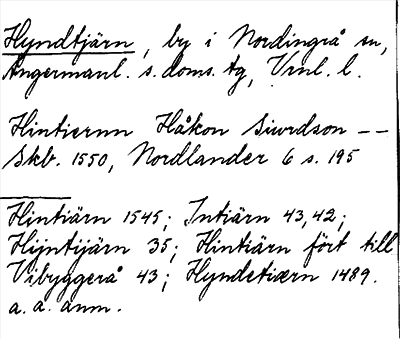 Hyndtjärn, by i Nordingrå sn,
Ångermanl. s. doms. tg, Vnl. l.
Hintiernn Håkon Siwrdson --
Skb. 1550, Nordlander 6 s. 195
Hintiärn 1545; Intiärn 43, 42;
Hijntijärn 35; Hintiärn fört till
Vibyggerå 43; Hyndetiærn 1489.
a. a. anm.